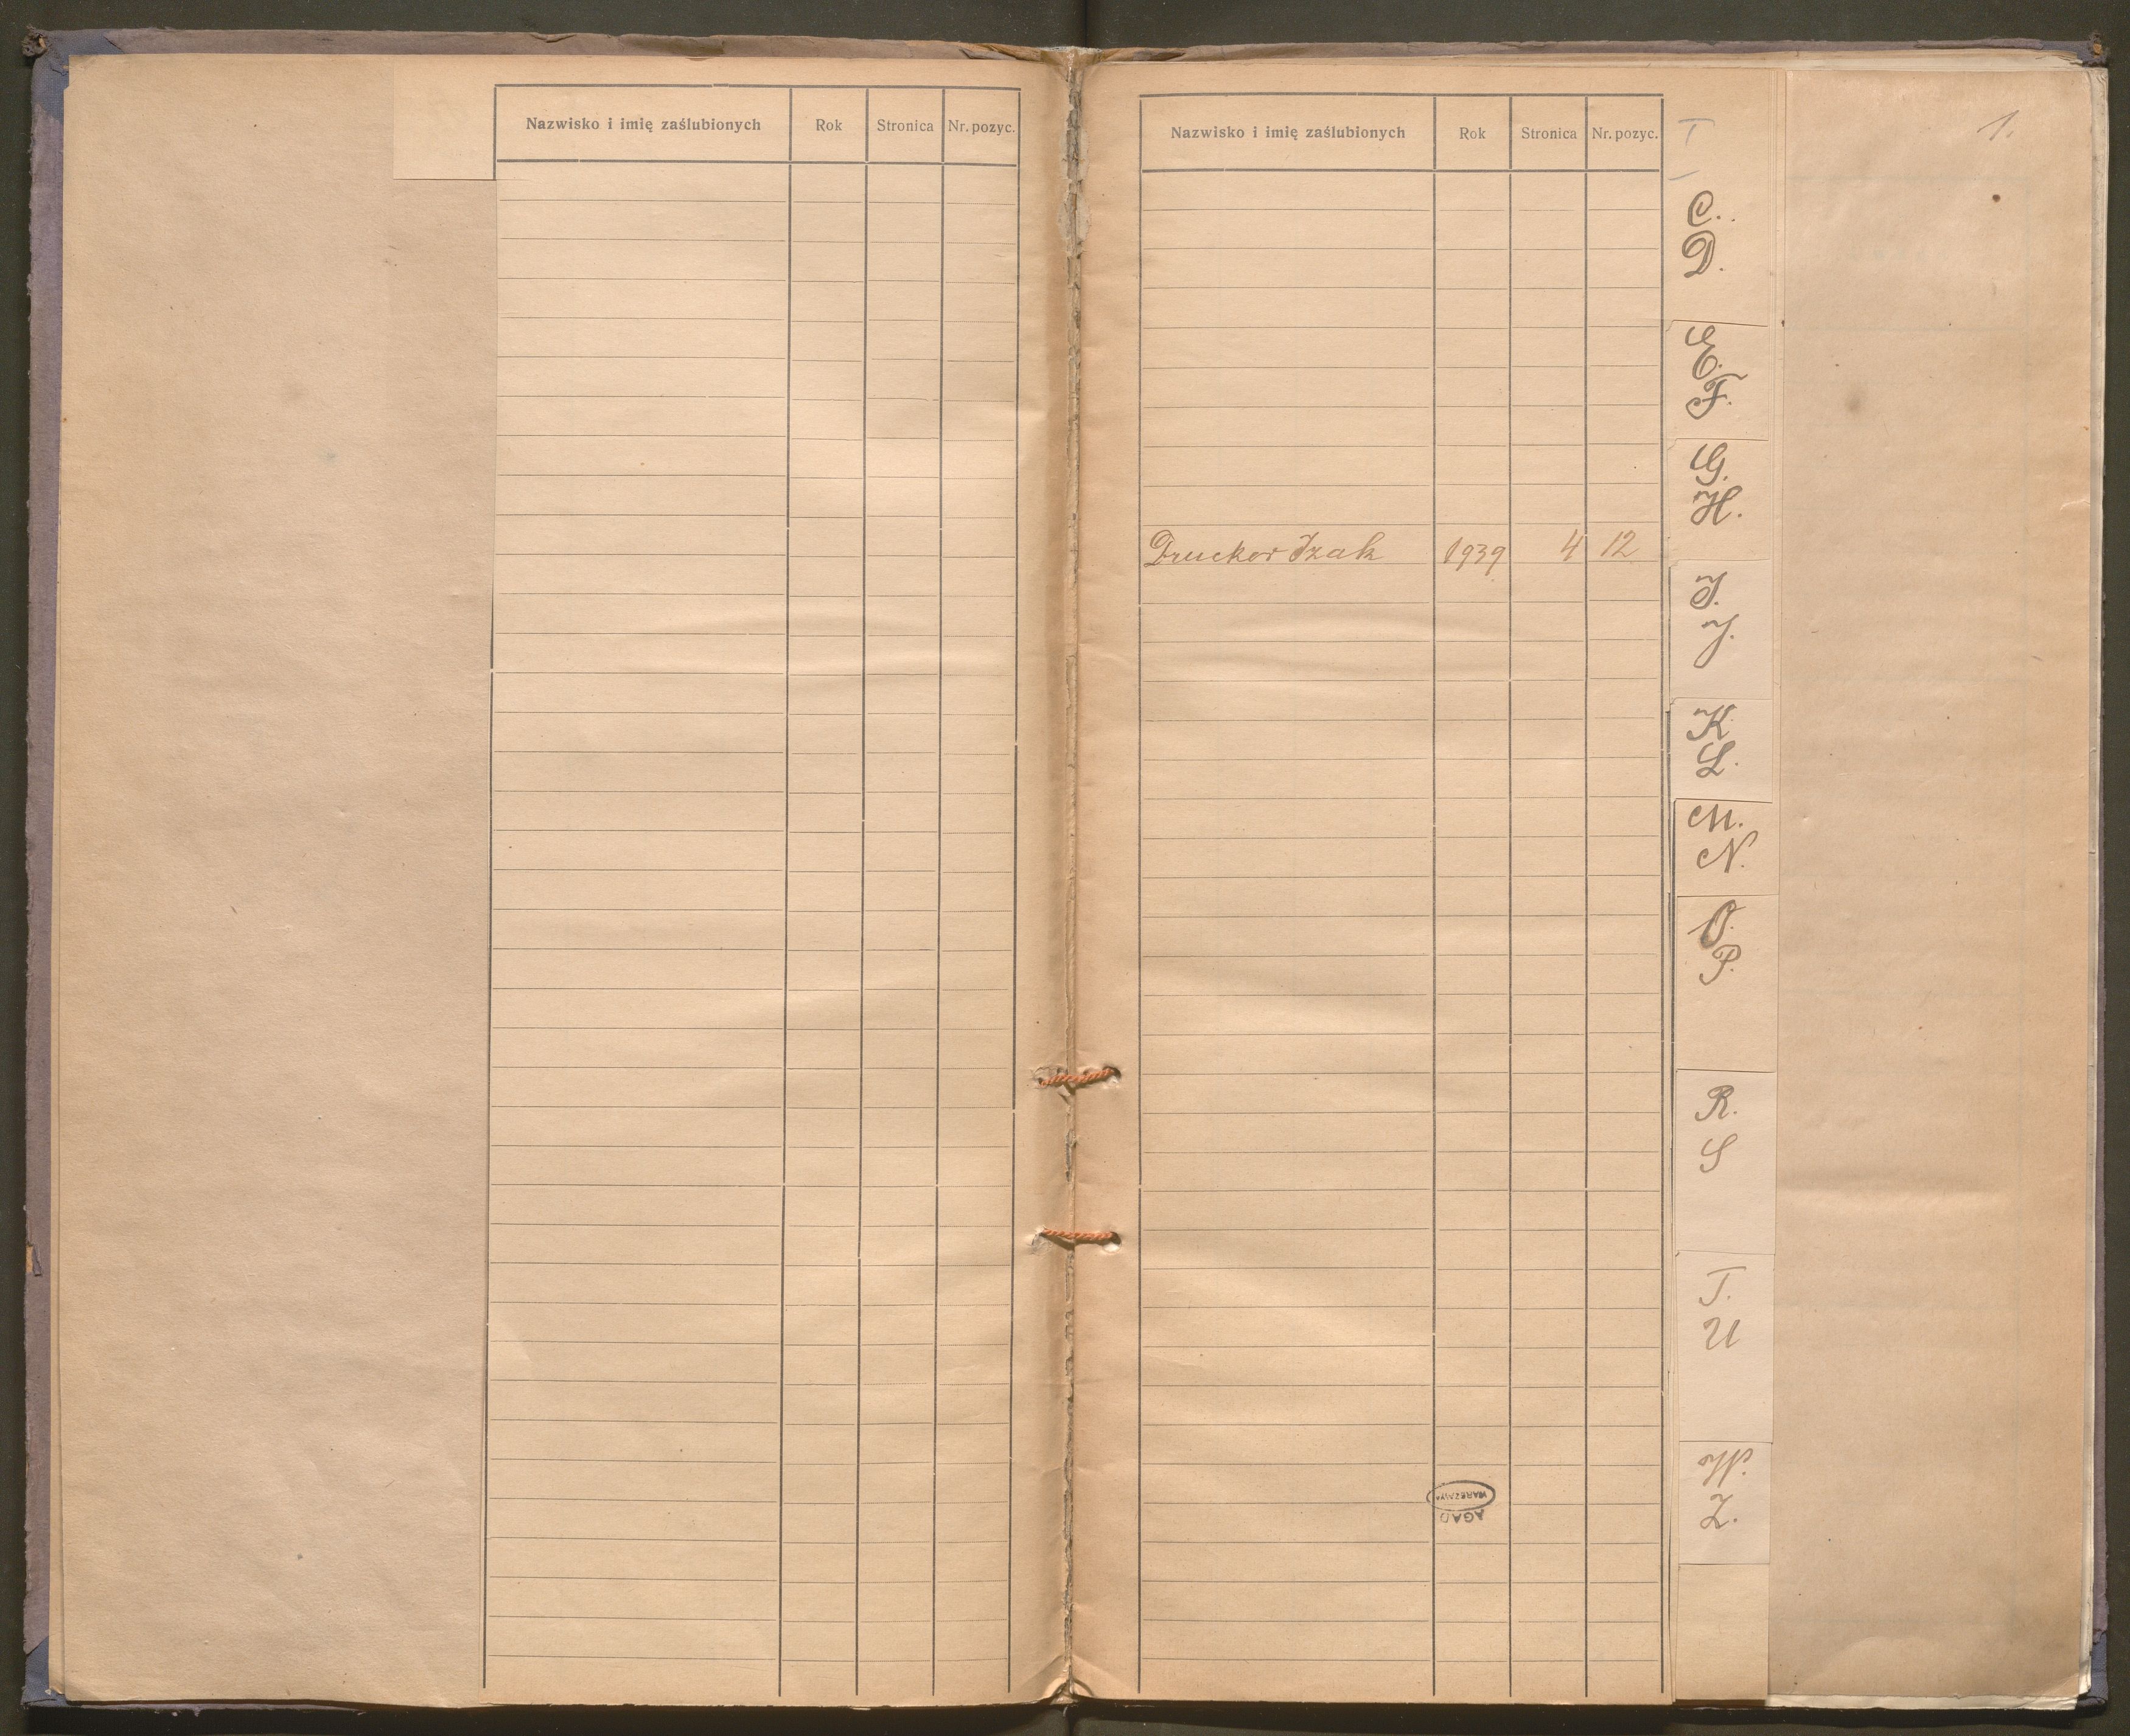 Nazwisko i imię zaślubionych Rok Stronica Nr. pozyc.
Nazwisko i imię zaślubionych Rok Stronica Nr. pozyc.
Drucker Izak 1939 4 12
AGAD
WARSZAWA
C.
D.
E.
F.
G.
H.
I.
J.
K.
L.
M.
N.
O.
P.
R.
S
T.
U
W.
Z.
1.